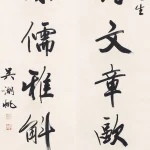 文章歐
儒雅斛
生
吴湖帆